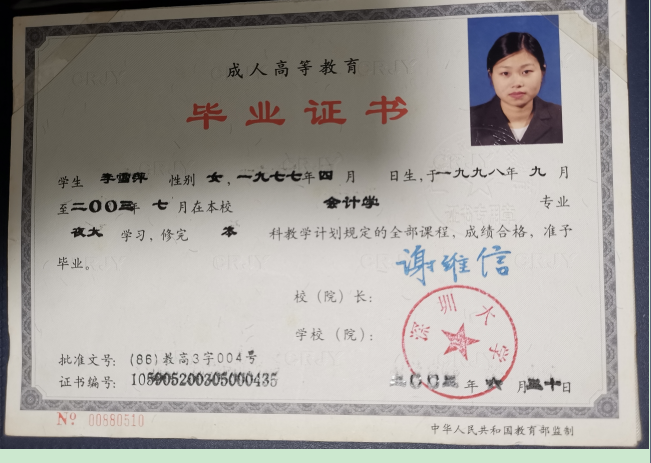 成人高等教育
毕业证书
学生 李雪萍 性别 女，一九七七年四月 日生，于一九九八年 九 月
至二〇〇三年 七 月在本校 会计学 专业
夜大 学习，修完 本 科教学计划规定的全部课程，成绩合格，准予
毕业。
谢维信
校（院）长：
学校（院）：
深圳大学
批准文号：(86)教高3字004号
证书编号：105905200305000435
二〇〇三 年 六 月 三十日
Nº 00880510
中华人民共和国教育部监制